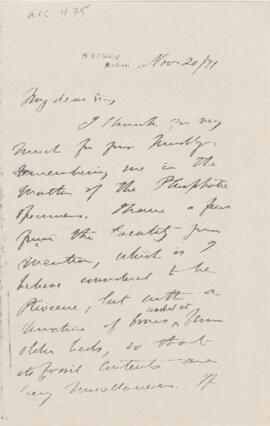 acc 475
Nov 20/71
My dear Sir,
I thank you very
much for your kindly
remembering me in the
matter of the Phosphatic
specimens. I have a few
from the locality you
mention, which is I
believe considered to be
Pliocene, but with a
washed out
of bones from
older beds, so that
its fossil contents are
very miscellaneous. If